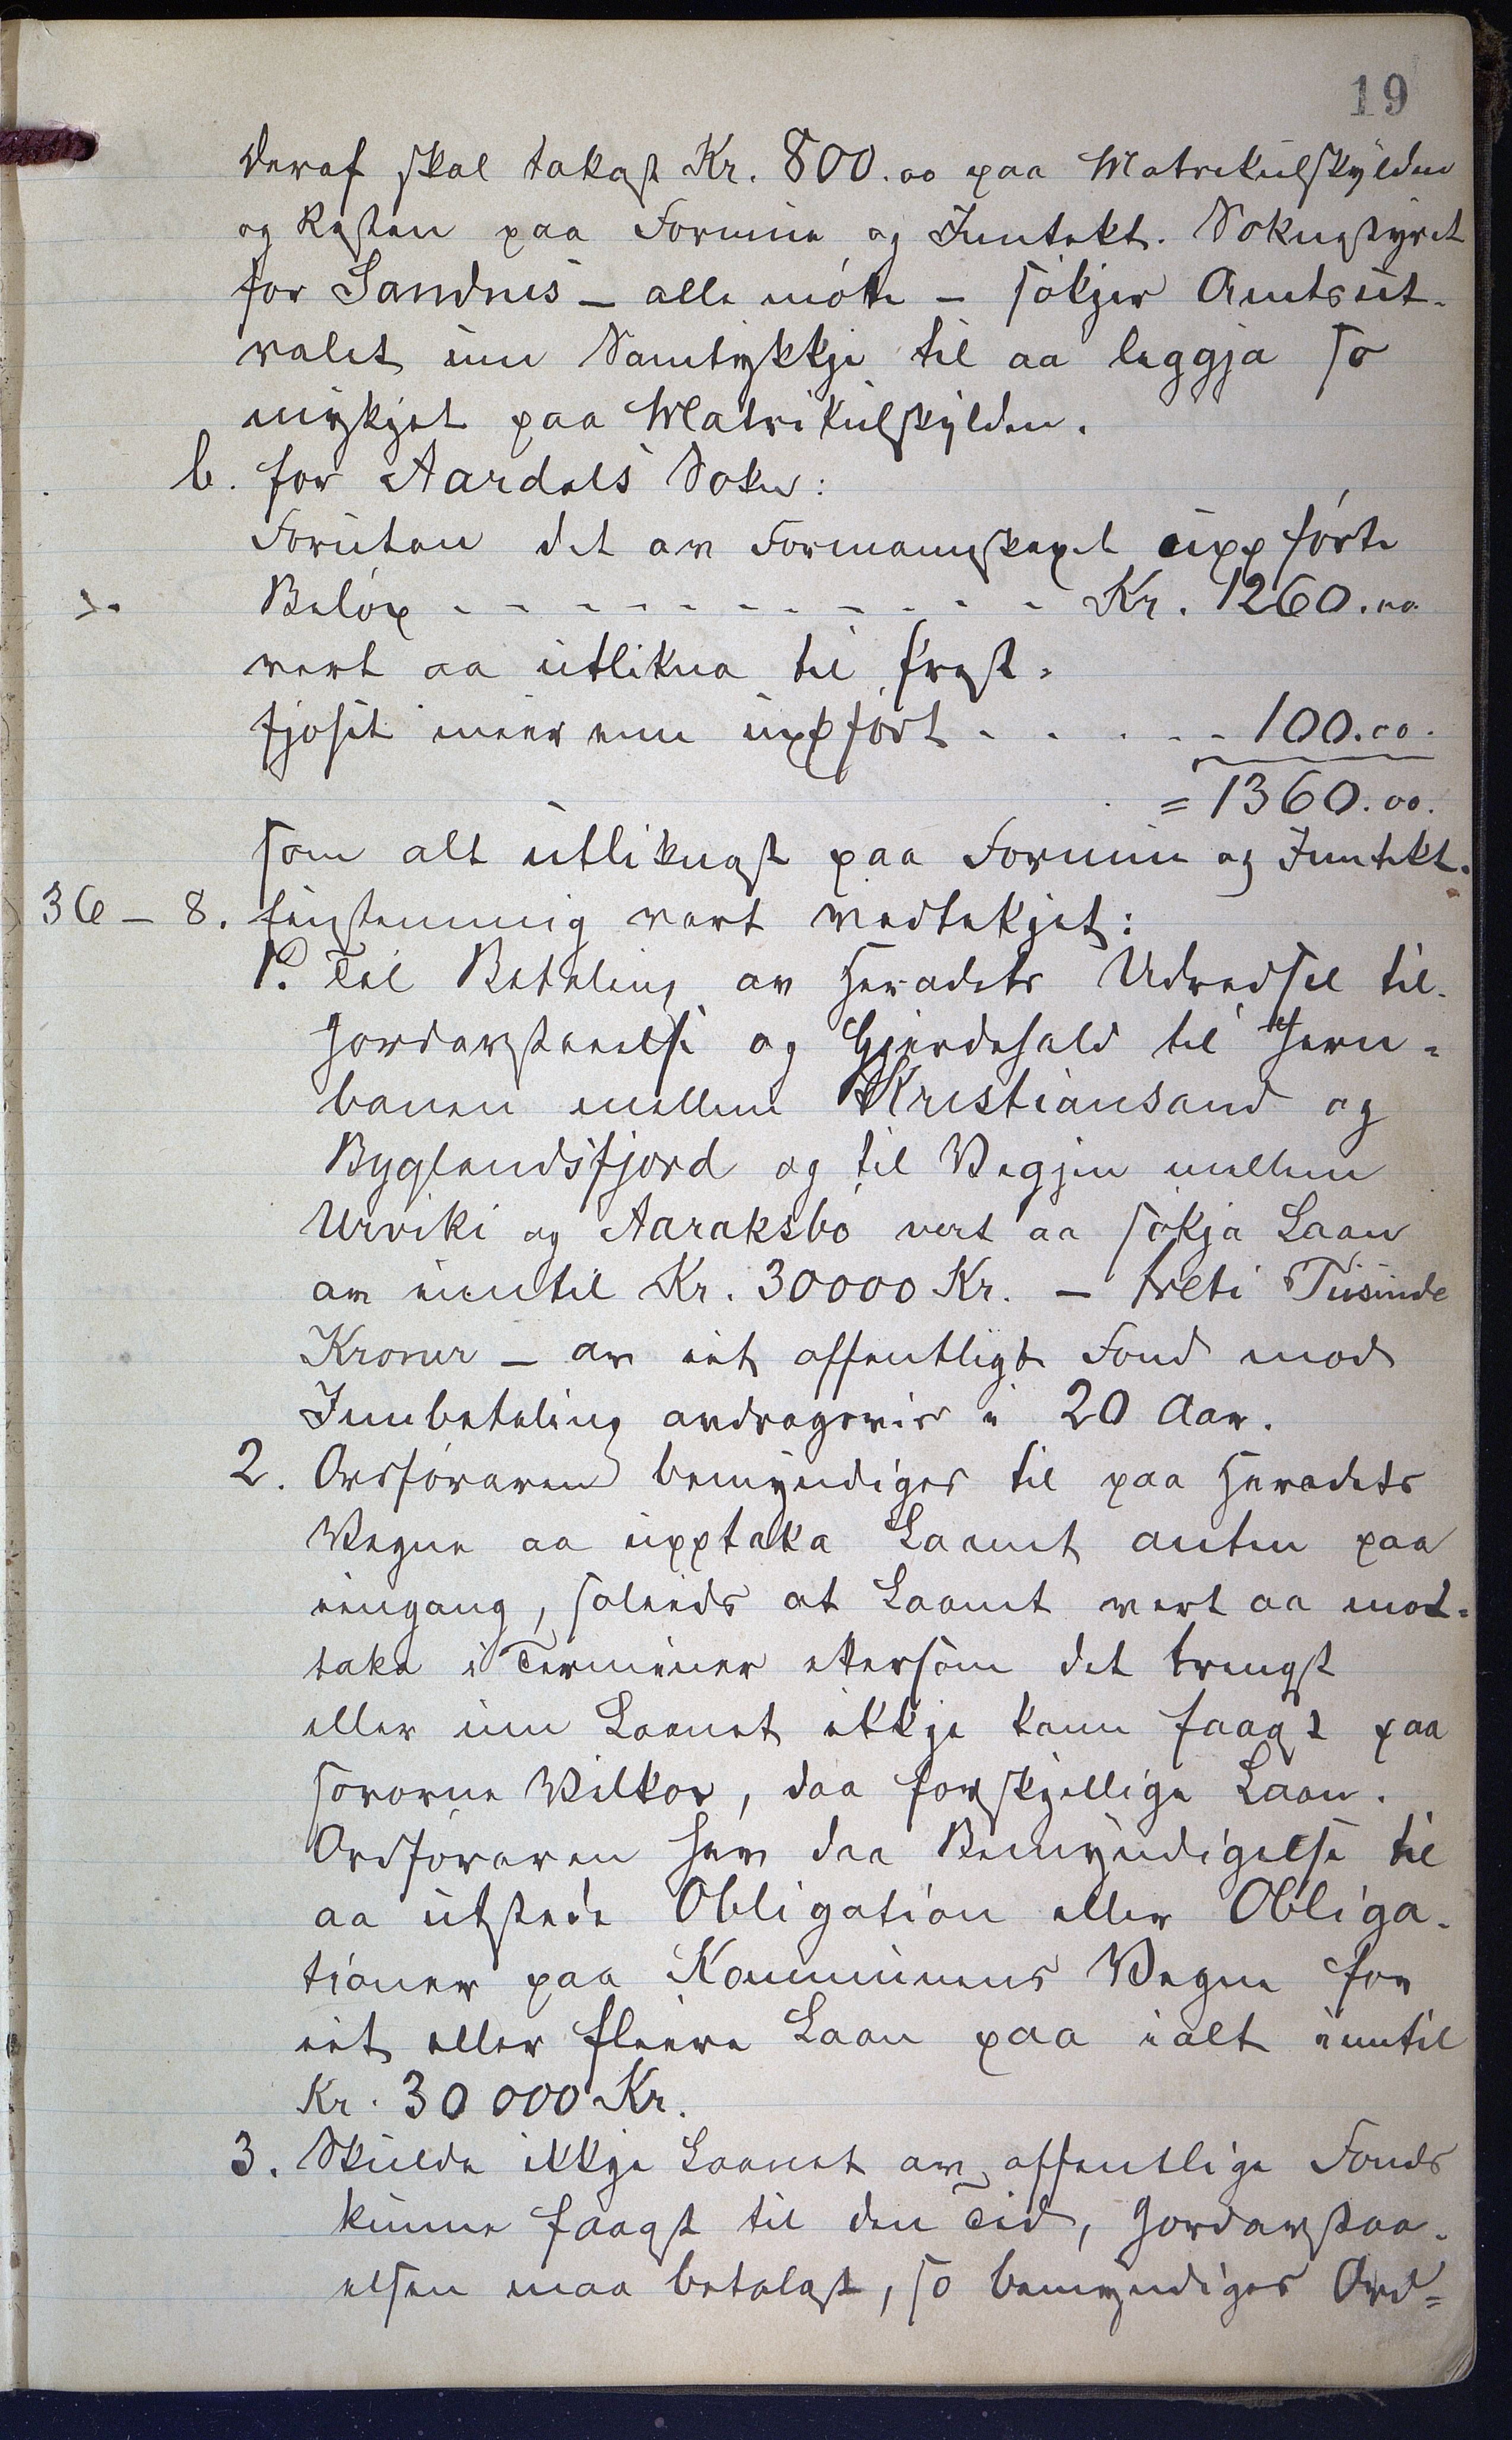 19
deraf skal takast Kr. 800.00 paa Matrikulskylden
og Resten paa Formue og Inntekt. Soknestyret
for Sandnes - alle møtte - søkjer Amtsut-
valet um Samtykkje til aa leggja so
mykjet paa Matrikulskylden.
b. for Aardals Sokn:
Forutan det av Formannskapet uppførte
Beløp - - - - - - - - - - Kr. 1260.00
vert aa utlikna til
meir enn uppført - - - - - 100.00.
= 1360.00.
som alt utliknast paa Formue og Inntekt.
36 - 8. Einstemmig vert vedtekjet:
1. Til Betaling av Heradets Udredsel til
Jordavstaaelse og Gjerdehald til Jern-
banen mellem Kristiansand og
Byglandsfjord og til Vegjen mellem
Urviki og Aaraksbø vert aa søkja Laan
av inntil Kr. 30000 Kr. - treti Tusinde
Kronur - av eit offentligt Fond mod
Innbetaling avdragsvis i 20 Aar.
2. Ordføraren bemyndiges til paa Heradets
Vegne aa upptaka Laanet anten paa
eingang, soleids at Laanet vert aa mot-
taka i Terminer ettersom det trengst
eller um Laanet ikkje kann faast paa
sovorne Vilkor, daa forskjellige Laan.
Ordføraren hev daa Bemyndigelse til
aa utstede Obligation eller Obliga-
tioner paa Kommunens Vegne for
eit eller fleire Laan paa ialt inntil
Kr. 30000 Kr.
3. Skulde ikkje Laanet av offentlige Fonds
kunne faast til den Tid, Jordavstaa-
elsen maa betalast, so bemyndiges Ord=